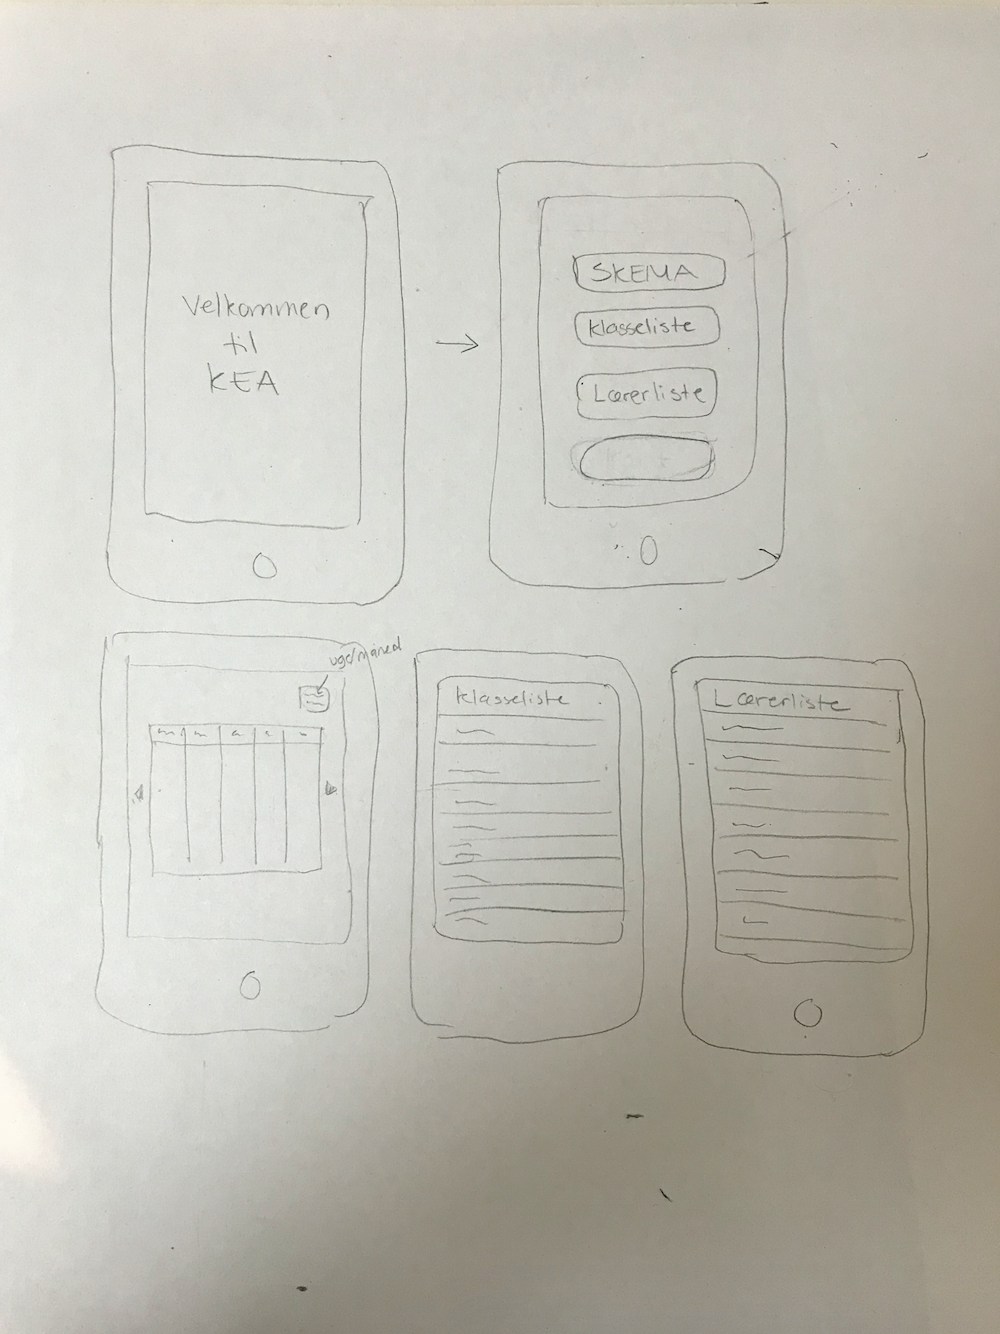 Velkommen
til
KEA
SKEMA
Klasseliste
Lærerliste
uge/måned
Klasseliste
Lærerliste